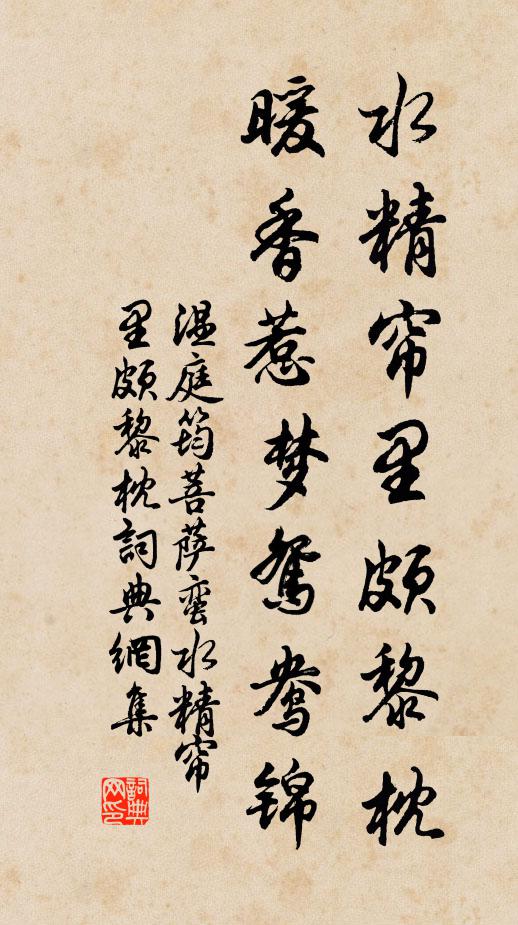 水精帘里颇黎枕
暖香惹梦鸳鸯锦
温庭筠菩萨蛮水精帘
里颇黎枕詞典網集
詞典网印